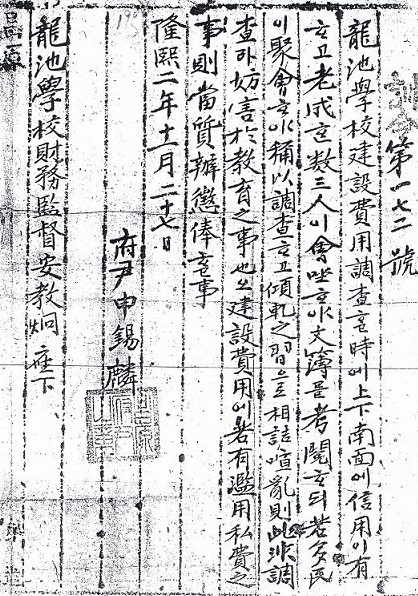 訓令第一七二號
龍池學校建設費用調查 時에上下南面에信用이有
 고老成 数三人이會坐 야文簿를考閱 되若多民
이聚會 야稱以調查 고傾軋之習으로相詰喧亂則此非調
查라妨害於教育之事也오建設費用에若有濫用私費之
事則當質辦懲俸 事
隆熙二年十一月二十七日
府尹申錫麟
龍池學校財務監督安教炯 座下